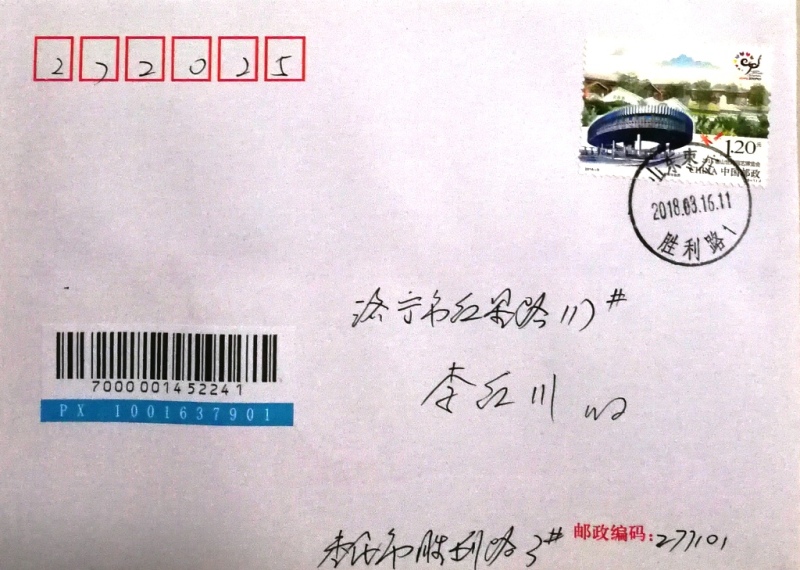 272025
1.20元
CHINA 中国邮政
山东枣庄
2018.03.16.11
胜利路1
济宁市红星路117#
李红川 收
7000001452241
PX 1001637901
枣庄市胜利路3#
邮政编码：277101